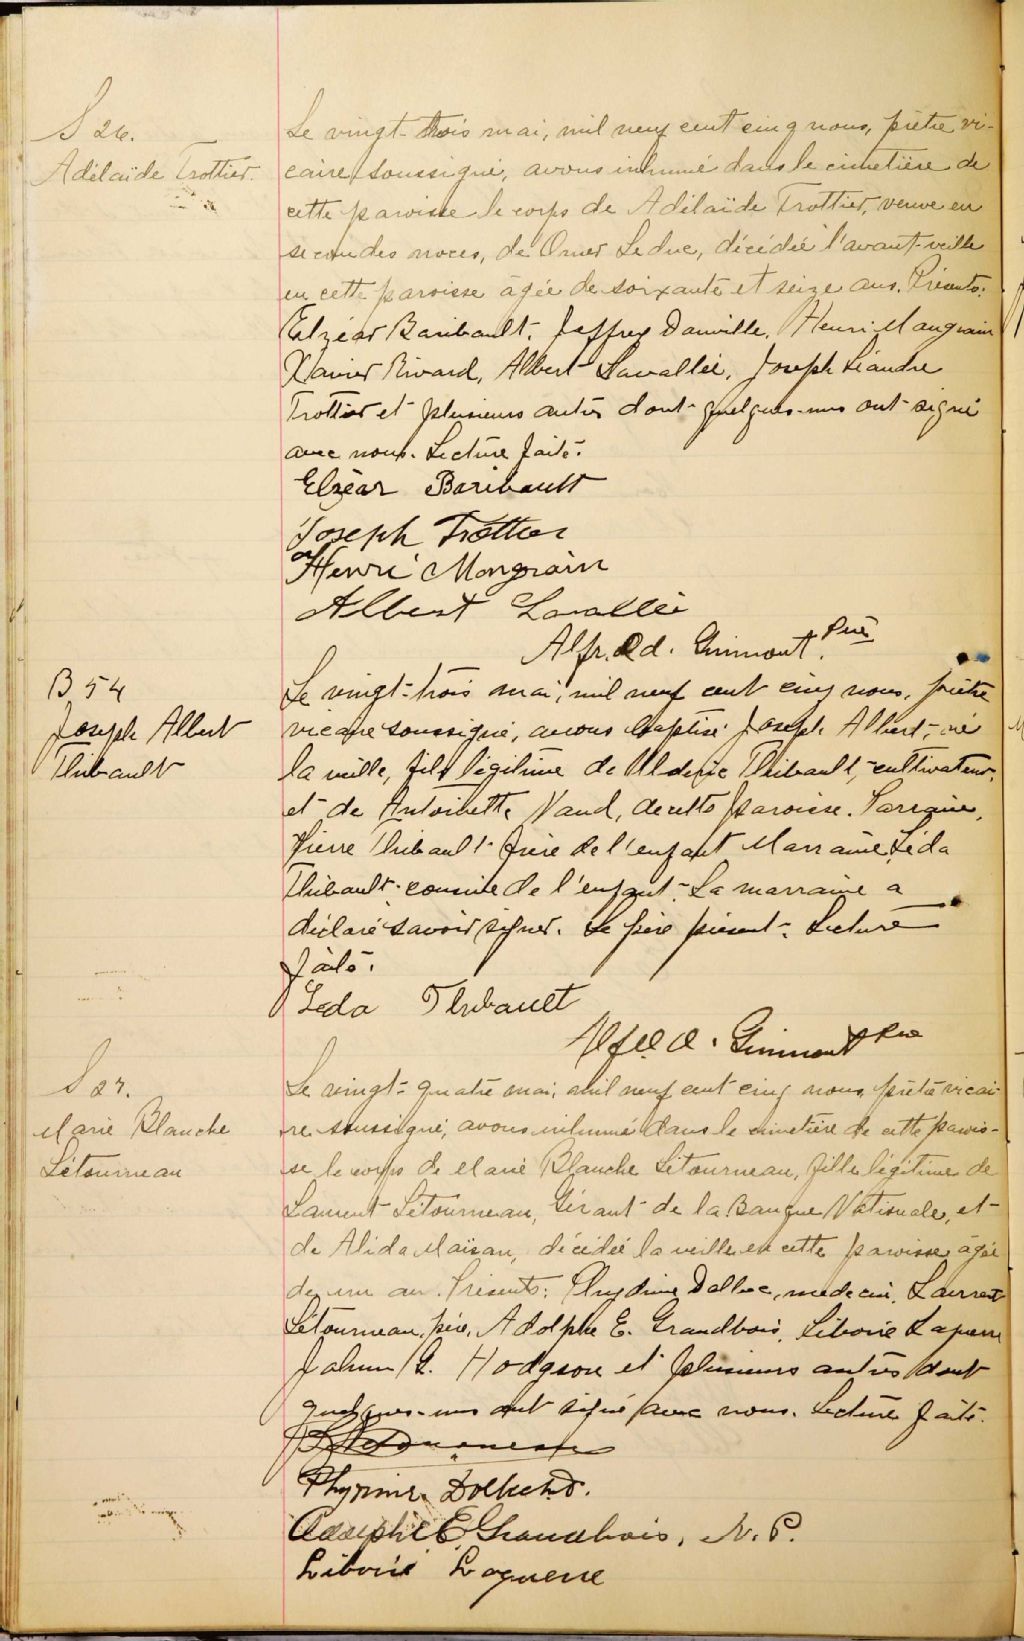 S 26.
Adélaïde Trottier.
Le vingt-trois mai, mil neuf cent cinq nous, prêtre vi-
caire soussigné, avons inhumé dans le cimetière de
cette paroisse le corps de Adélaïde Trottier, veuve en
secondes noces, de Omer Leduc, décédée l'avant-veille
en cette paroisse âgée de soixante et seize ans. Présents:
Elzéar Baribault, Joffrey Douville, Henri Maugrain
Xavier Rivard, Albert Lavallée, Joseph Léandre
Trottier et plusieurs autres dont quelques-uns ont signé
avec nous. Lecture faite.
Elzéar Baribault
Joseph Trottier
Henri Mongrain
Albert Lavallée
Alfred. Grimont. Ptre
B 54
Joseph Albert
Thibault
Le vingt-trois mai, mil neuf cent cinq nous, prêtre
vicaire soussigné, avons baptisé Joseph Albert, né
la veille, fils légitime de Uldéric Thibault, cultivateur,
et de Antoinette Naud, de cette paroisse. Parrain,
Pierre Thibault frère de l'enfant Marraine Léda
Thibault cousine de l'enfant. La marraine a
déclaré savoir signer. Le père présent. Lecture
faite.
Leda Thibault
Alfred. Grimont Ptre
S 27.
Marie Blanche
Létourneau
Le vingt-quatre mai, mil neuf cent cinq nous prêtre vicai-
re soussigné, avons inhumé dans le cimetière de cette parois-
se le corps de Marie Blanche Létourneau, fille légitime de
Laurent Létourneau, Gérant de la Banque Nationale, et
de Alida Maisan, décédée la veille en cette paroisse âgée
de un an. Présents: Phydime Dolbec, médecin, Laurent
Létourneau, père, Adolphe E. Grandbois, Liborie Laguerre
G. Hodgson et plusieurs autres dont
quelques-uns ont signé avec nous. Lecture faite.
Létourneau
Phydime Dolbec M.D.
Adolphe E. Grandbois, N.P.
Liborie Laguerre